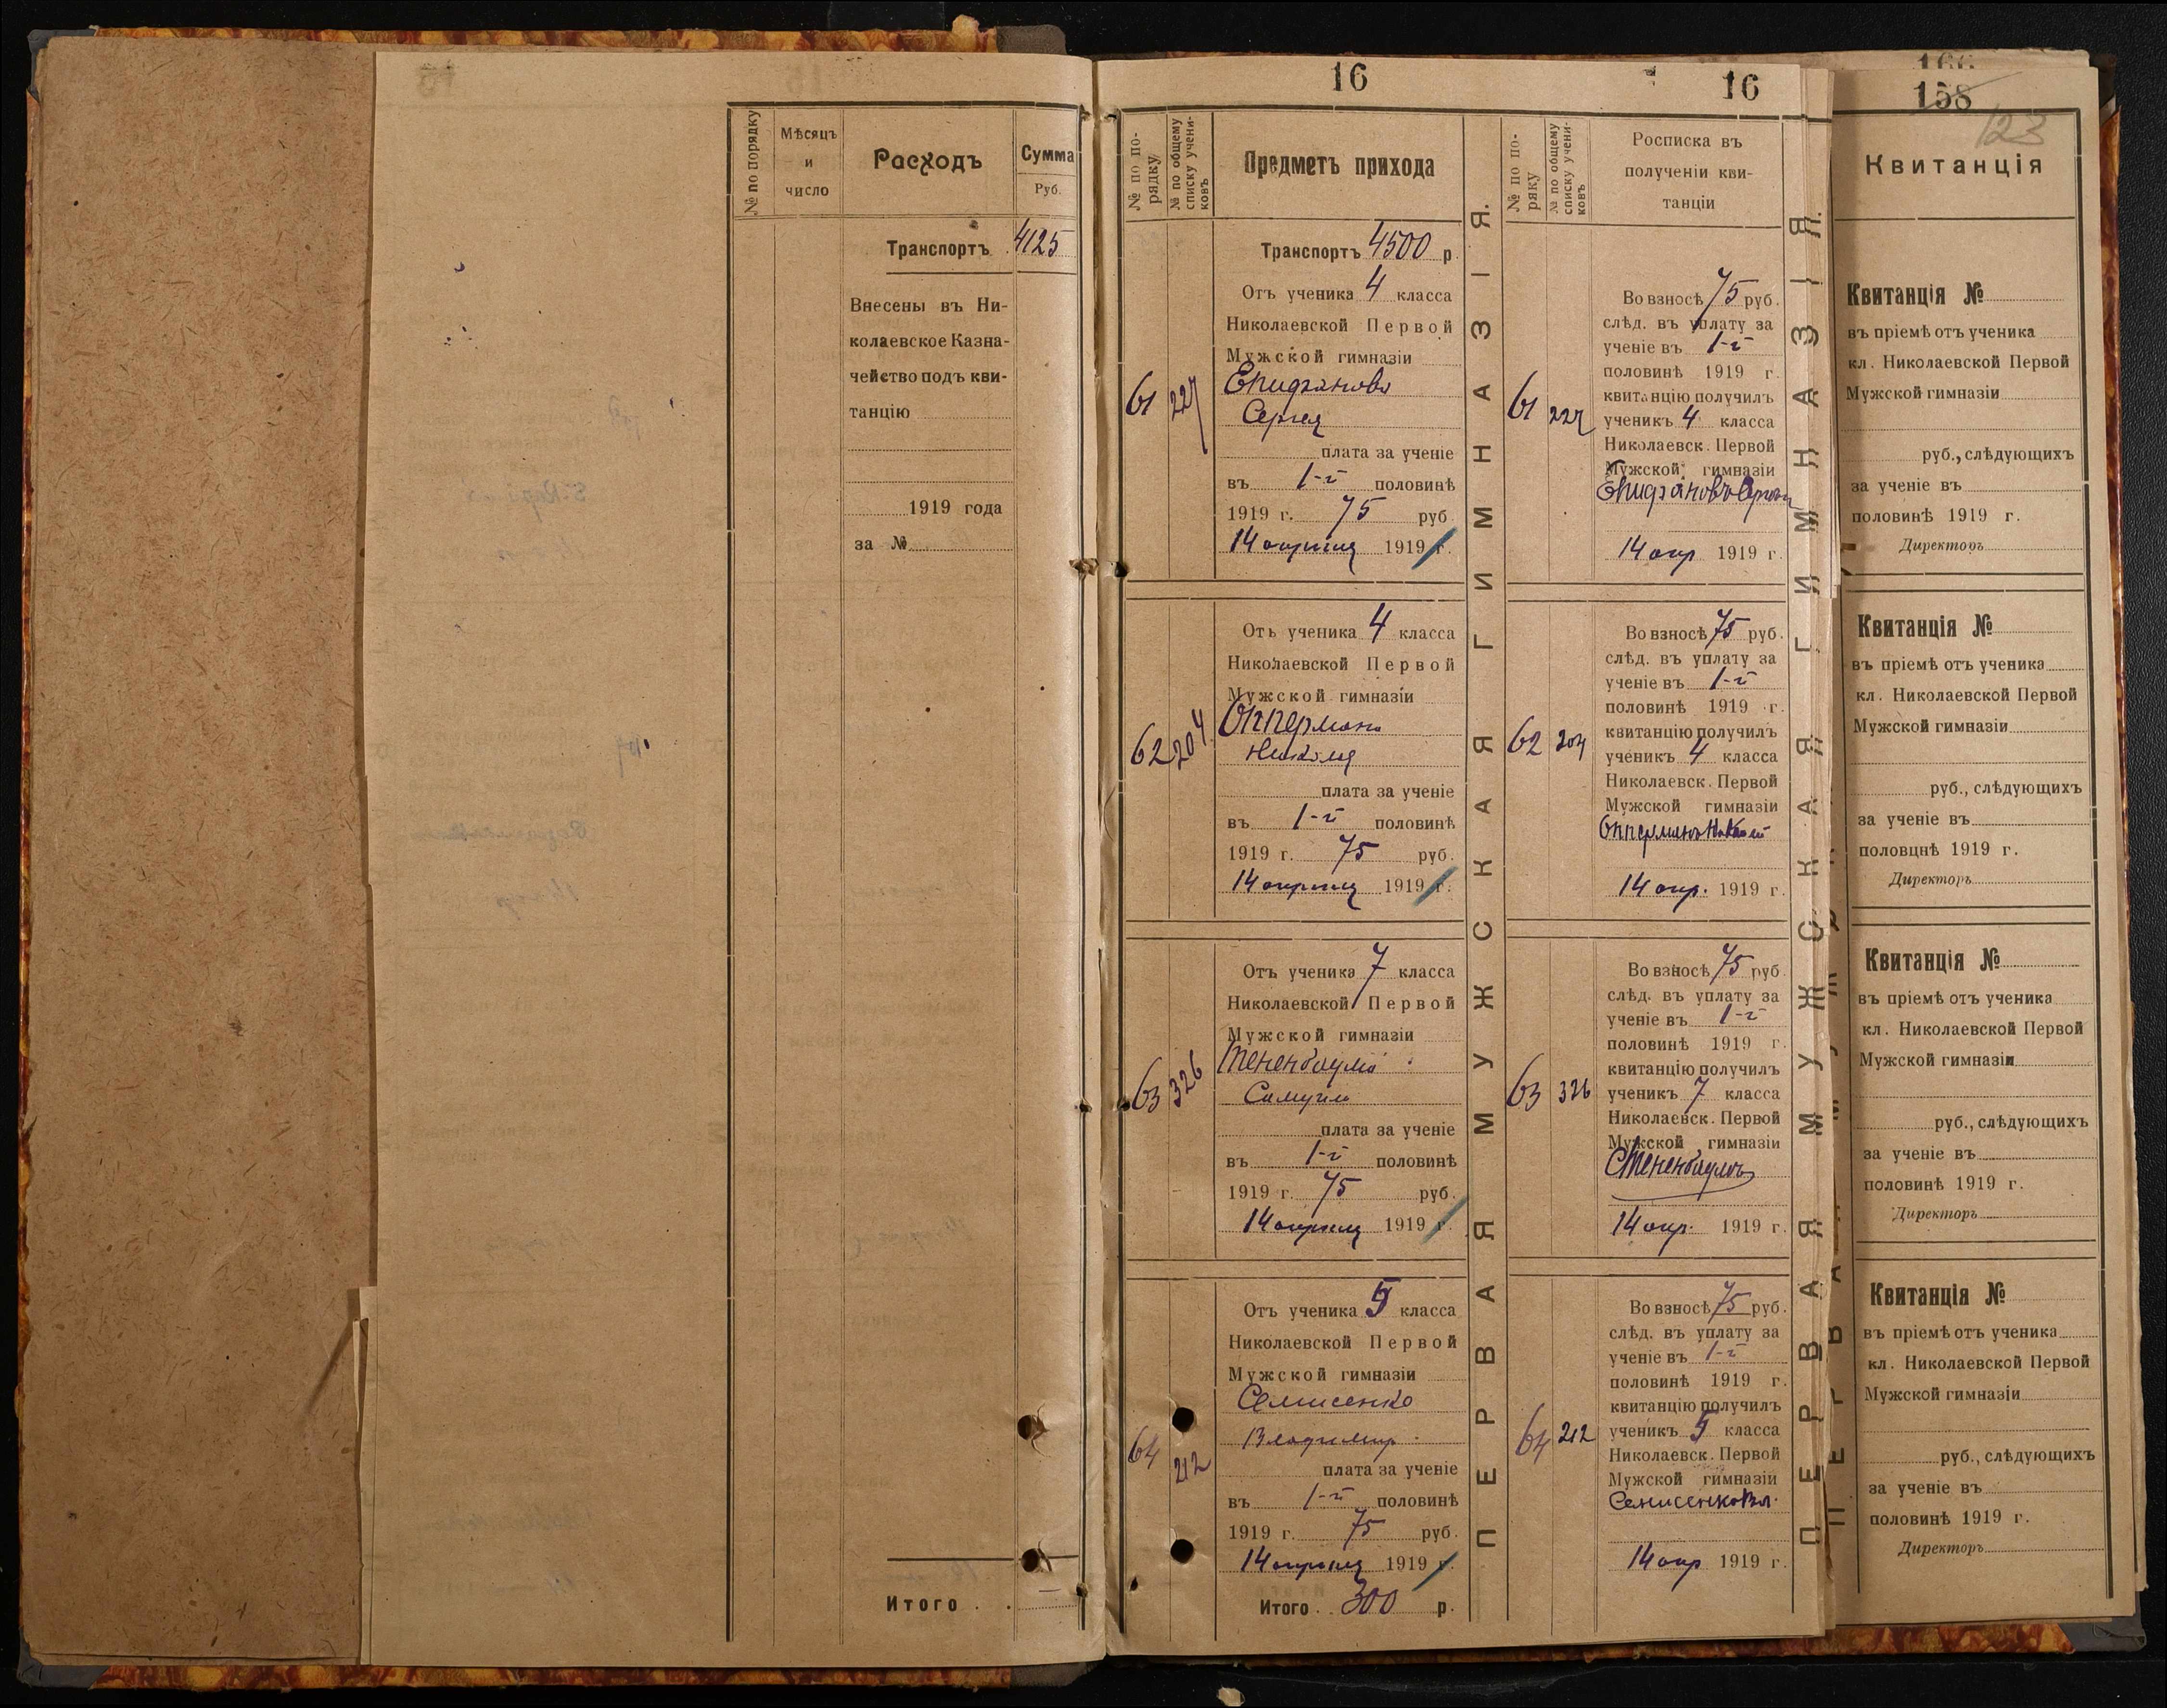 № по порядку
Мѣсяцъ
и
число
Расходъ
Сумма
Руб.
Транспортъ 4125
Внесены въ Ни-
колаевское Казна-
чейство подъ кви-
танцію
1919 года
за №
Итого . .
16
№ по по-
рядку
№ по общему
списку учени-
ковъ
Предметъ прихода
Транспортъ 4500 р.
Отъ ученика 4 класса
Николаевской Первой
Мужской гимназіи
61 227 Епифанова
Сергея
плата за ученіе
въ 1-й половинѣ
1919 г. 75 руб
14 апреля 1919 г.
Отъ ученика 4 класса
Николаевской Первой
Мужской гимназіи
62 204 Опперманъ
Николая
плата за ученіе
въ 1-й половинѣ
1919 г. 75 руб.
14 апреля 1919 г.
Отъ ученика 7 класса
Николаевской Первой
Мужской гимназіи
63 326 Тененбаумъ
Самуилъ
плата за ученіе
въ 1-й половинѣ
1919 г. 75 руб.
14 апреля 1919 г.
Отъ ученика 5 класса
Николаевской Первой
Мужской гимназіи
64 212 Семисенко
Владимир
плата за ученіе
въ 1-й половинѣ
1919 г. 75 руб.
14 апреля 1919 г.
Итого . . 300 р.
ПЕРВАЯ МУЖСКАЯ ГИМНАЗІЯ.
16
№ по по-
ряку
№ по общему
списку учени-
ковъ
Росписка въ
полученіи кви-
танціи
Во взносѣ 75 руб.
слѣд. въ уплату за
ученіе въ 1-й
половинѣ 1919 г.
квитанцію получилъ
61 227 ученикъ 4 класса
Николаевск. Первой
Мужской гимназіи
Епифановъ Сергей
14 апр 1919 г.
Во взносѣ 75 руб.
слѣд. въ уплату за
ученіе въ 1-й
половинѣ 1919 г.
квитанцію получилъ
62 204 ученикъ 4 класса
Николаевск. Первой
Мужской гимназіи
Опперманъ Николай
14 апр. 1919 г.
Во взносѣ 75 руб.
слѣд. въ уплату за
ученіе въ 1-й
половинѣ 1919 г.
квитанцію получилъ
63 326 ученикъ 7 класса
Николаевск. Первой
Мужской гимназіи
СТененбаумъ
14 апр. 1919 г.
Во взносѣ 75 руб.
слѣд. въ уплату за
ученіе въ 1-й
половинѣ 1919 г.
квитанцію получилъ
64 212 ученикъ 5 класса
Николаевск. Первой
Мужской гимназіи
Семисенко Вл.
14 апр 1919 г.
ПЕРВАЯ МУЖСКАЯ ГИМНАЗІЯ.
166
158
123
Квитанція
Квитанція №
въ пріемѣ отъ ученика
кл. Николаевской Первой
Мужской гимназіи
руб., слѣдующихъ
за ученіе въ
половинѣ 1919 г.
Директоръ
Квитанція №
въ пріемѣ отъ ученика
кл. Николаевской Первой
Мужской гимназіи
руб., слѣдующихъ
за ученіе въ
половцнѣ 1919 г.
Директоръ
Квитанція №
въ пріемѣ отъ ученика
кл. Николаевской Первой
Мужской гимназіи
руб., слѣдующихъ
за ученіе въ
половинѣ 1919 г.
Директоръ
Квитанція №
въ пріемѣ отъ ученика
кл. Николаевской Первой
Мужской гимназіи
руб., слѣдующихъ
за ученіе въ
половинѣ 1919 г.
Директоръ